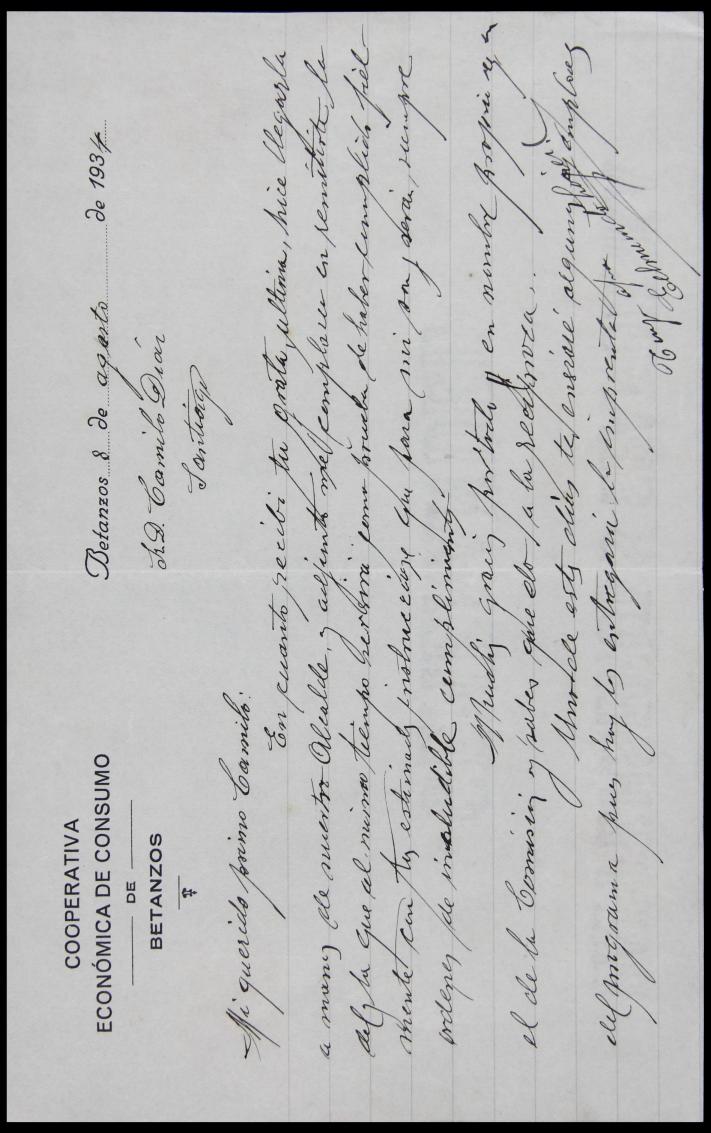 COOPERATIVA
ECONÓMICA DE CONSUMO
DE
BETANZOS
Betanzos 8 de agosto de 1934
Sr. D. Camilo Díaz
Santiago
Mi querido primo Camilo:
En cuanto recibí tu grata última, hice llegarla
a manos de nuestro Alcalde, y adjunto me complazco en remitirte la
de la que al mismo tiempo servirá como prueba de haber cumplido fiel-
mente con tus estimadas instrucciones que para mi son, y serán, siempre
ordenes de ineludible cumplimiento.
Muchas gracias por todo en nombre propio y en
el de la Comisión y sabes quedo a la recíproca.
Uno de estos días te enviaré algunos ejemplares
del programa pues hoy los entregará la imprenta.